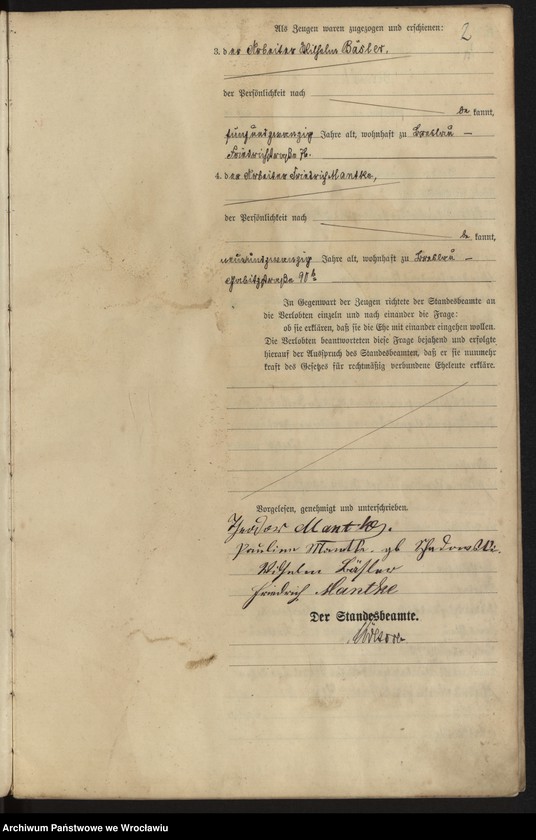 2
Als Zeugen waren zugezogen und erschienen:
3. der Arbeiter Wilhelm Bäsler,
der Persönlichkeit nach
be kannt,
fünfundzwanzig Jahre alt, wohnhaft zu Breslau –
Friedrichstraße 76.
4. der Arbeiter Friedrich Mantke,
der Persönlichkeit nach
be kannt,
neunundzwanzig Jahre alt, wohnhaft zu Breslau –
Gabitzstraße 90b
In Gegenwart der Zeugen richtete der Standesbeamte an
die Verlobten einzeln und nach einander die Frage:
ob sie erklären, daß sie die Ehe mit einander eingehen wollen.
Die Verlobten beantworteten diese Frage bejahend und erfolgte
hierauf der Ausspruch des Standesbeamten, daß er sie nunmehr
kraft des Gesetzes für rechtmäßig verbundene Eheleute erkläre.
Vorgelesen, genehmigt und unterschrieben.
Theodor Mantke.
Pauline Mantke gb
Wilhelm Bäsler
Friedrich Mantke
Der Standesbeamte.
Archiwum Państwowe we Wrocławiu